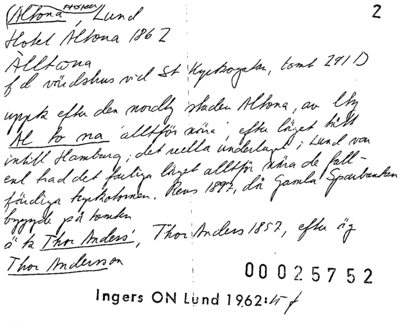 Altona, Lund
2
Hotel Altona 1862
Alltona
f d värdshus vid St Kyrkogatan, tomt 291 D
uppk efter den nordty staden Altona, av lty
Al to na 'alltför nära', efter läget tätt
intill Hamburg; det reella underlaget i Lund var
enl had det farliga läget alltför nära de fall-
färdiga kyrkotornen. Revs 1892, då Gamla Sparbanken
byggde på tomten
ö k Thor Anders', Thor Anders 1857, efter äg
Thor Andersson
00025752
Ingers ON Lund 1962:15 f